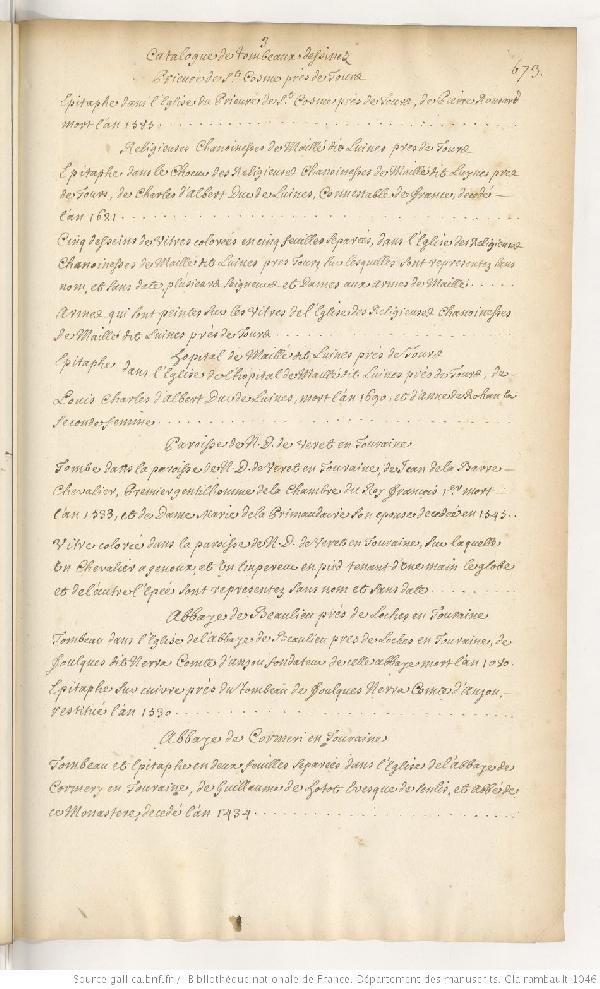 3
Catalogue de tombeaux dessinez
673.
Prieuré de St Cosme près de Tours
Epitaphe dans l'Eglise du Prieuré de St Cosme près de Tours, de Pierre Ronsard
mort l'an 1585
Religieuses Chanoinesses de Maillé dit Luines près de Tours
Epitaphe dans le Choeur des Religieuses Chanoinesses de Maillé dit Luynes près
de Tours, de Charles d'Albert Duc de Luines, Connestable de France, decedé
l'an 1621
Cinq desseins de Vitres colorées en cinq feuilles separées, dans l'Eglise des Religieuses
Chanoinesses de Maillé dit Luines près Tours, sur lesquelles sont representez sans
nom, et sans date plusieurs Seigneurs et Dames aux armes de Maillé
Armes qui sont peintes sur les Vitres de l'Eglise des Religieuses Chanoinesses
de Maillé dit Luines près de Tours
hopital de Maillé dit Luines près de Tours
Epitaphe dans l'Eglise de l'hopital de Maillé dit Luines près de Tours, de
Louis Charles d'Albert Duc de Luines, mort l'an 1690, et d'Anne de Rohan sa
seconde femme
Paroisse de N. D. de Veret en Touraine
Tombe dans la paroisse de N. D. de Veret en Touraine, de Jean de la Barre
Chevalier, Premier gentilhomme de la Chambre du Roy François 1er mort
l'an 1533, et de Dame Marie de la Primaudaie son epouse decedée en 1545
Vitre colorée dans la paroisse de N. D. de Veret en Touraine, sur laquelle
Un Chevalier a genoux et Un Empereur en pied tenant d'une main le globe
et de l'autre l'Epée sont representez sans nom et sans date
Abbaye de Beaulieu près de Loches en Touraine
Tombeau dans l'Eglise de l'abbaye de Beaulieu près de Loches en Touraine, de
Foulques dit Nerra Comte d'anjou fondateur de cette abbaye mort l'an 1040
Epitaphe sur cuivre près du Tombeau de Foulques Nerra Comte d'anjou,
restitué l'an 1530
Abbaye de Cormeri en Touraine
Tombeau et Epitaphe en deux feuilles separées dans l'Eglise de l'abbaye de
Cormery en Touraine, de Guillaume de Hotot Evesque de Senlis, et Abbé de
ce Monastere, decedé l'an 1434
Source gallica.bnf.fr / Bibliothèque nationale de France. Département des manuscrits. Clairambault 1046